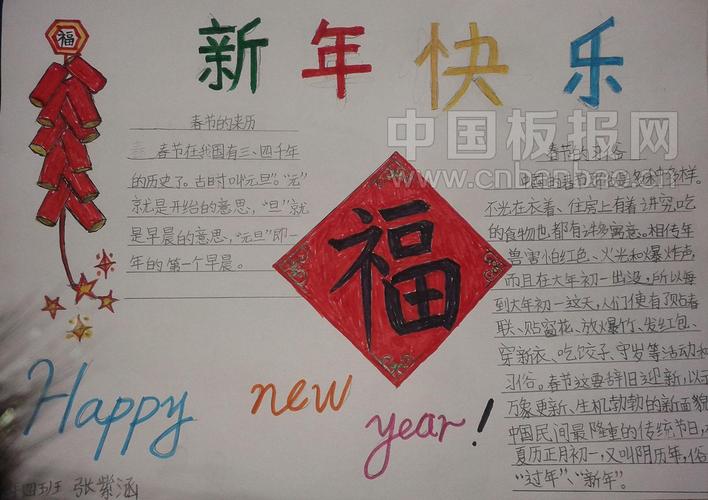 福
新年快乐
中国板报网
春节的来历
春节在我国有三、四千年
的历史了。古时叫“元旦”。“元”
就是开始的意思，“旦”就
是早晨的意思，“元旦”即一
年的第一个早晨。
福
春节的习俗
不光在衣着、住房上有着讲究，吃
的食物也都有
寓意。相传年
兽害怕红色、火光和爆炸声，
而且在大年初一出没，所以每
到大年初一这天，人们便有了贴春
联、贴窗花、放爆竹、发红包、
穿新衣、吃饺子、守岁等活动和
习俗。春节这要辞旧迎新，以示
万象更新、生机勃勃的新面貌
中国民间最隆重的传统节日，
夏历正月初一，又叫阴历年，俗
“过年”、“新年”。
Happy new year!
四班 张紫涵